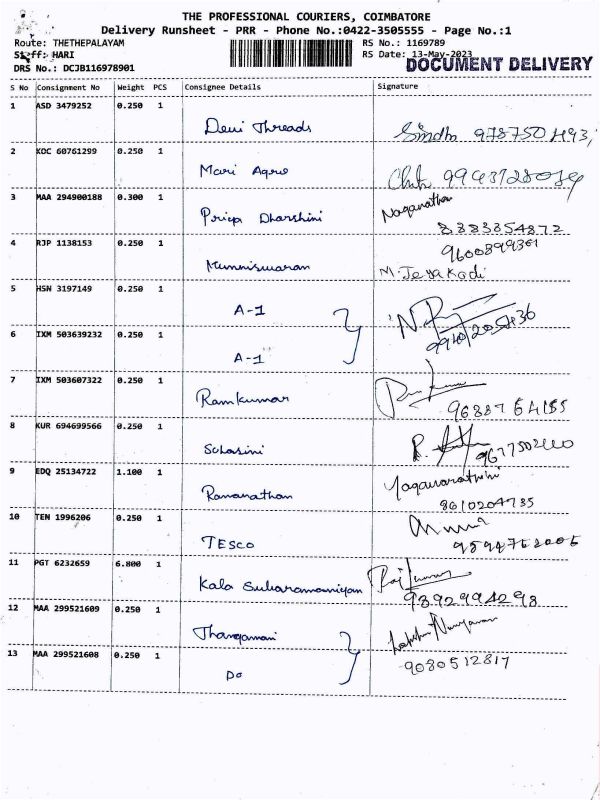 THE PROFESSIONAL COURIERS, COIMBATORE
Delivery Runsheet - PRR - Phone No.:0422-3505555 - Page No.:1
Route: THETHEPALAYAM RS No.: 1169789
Staff: HARI RS Date: 13-May-2023
DOCUMENT DELIVERY
DRS No.: DCJB116978901
S No Consignment No Weight PCS Consignee Details Signature
1 ASD 3479252 0.250 1
Devi Threads
2 KOC 60761299 0.250 1
Mari Agro
3 MAA 294900188 0.300 1 Naganathan
Priya Dharshini 8883354872
4 RJP 1138153 0.250 1 9600899361
Muniswaran M. Jeyakodi
5 HSN 3197149 0.250 1
A-1
6 IXM 503639232 0.250 1
A-1
7 IXM 503607322 0.250 1
Ramkumar 9688764155
8 KUR 694699566 0.250 1
Suhasini
9 EDQ 25134722 1.100 1
Ramanathan 8610204735
10 TEN 1996206 0.250 1
TESCO
11 PGT 6232659 6.800 1 Rajkumar
Kala Subaramaniyan 9892994298
12 MAA 299521609 0.250 1
Thangamani
13 MAA 299521608 0.250 1 9080512817
Do